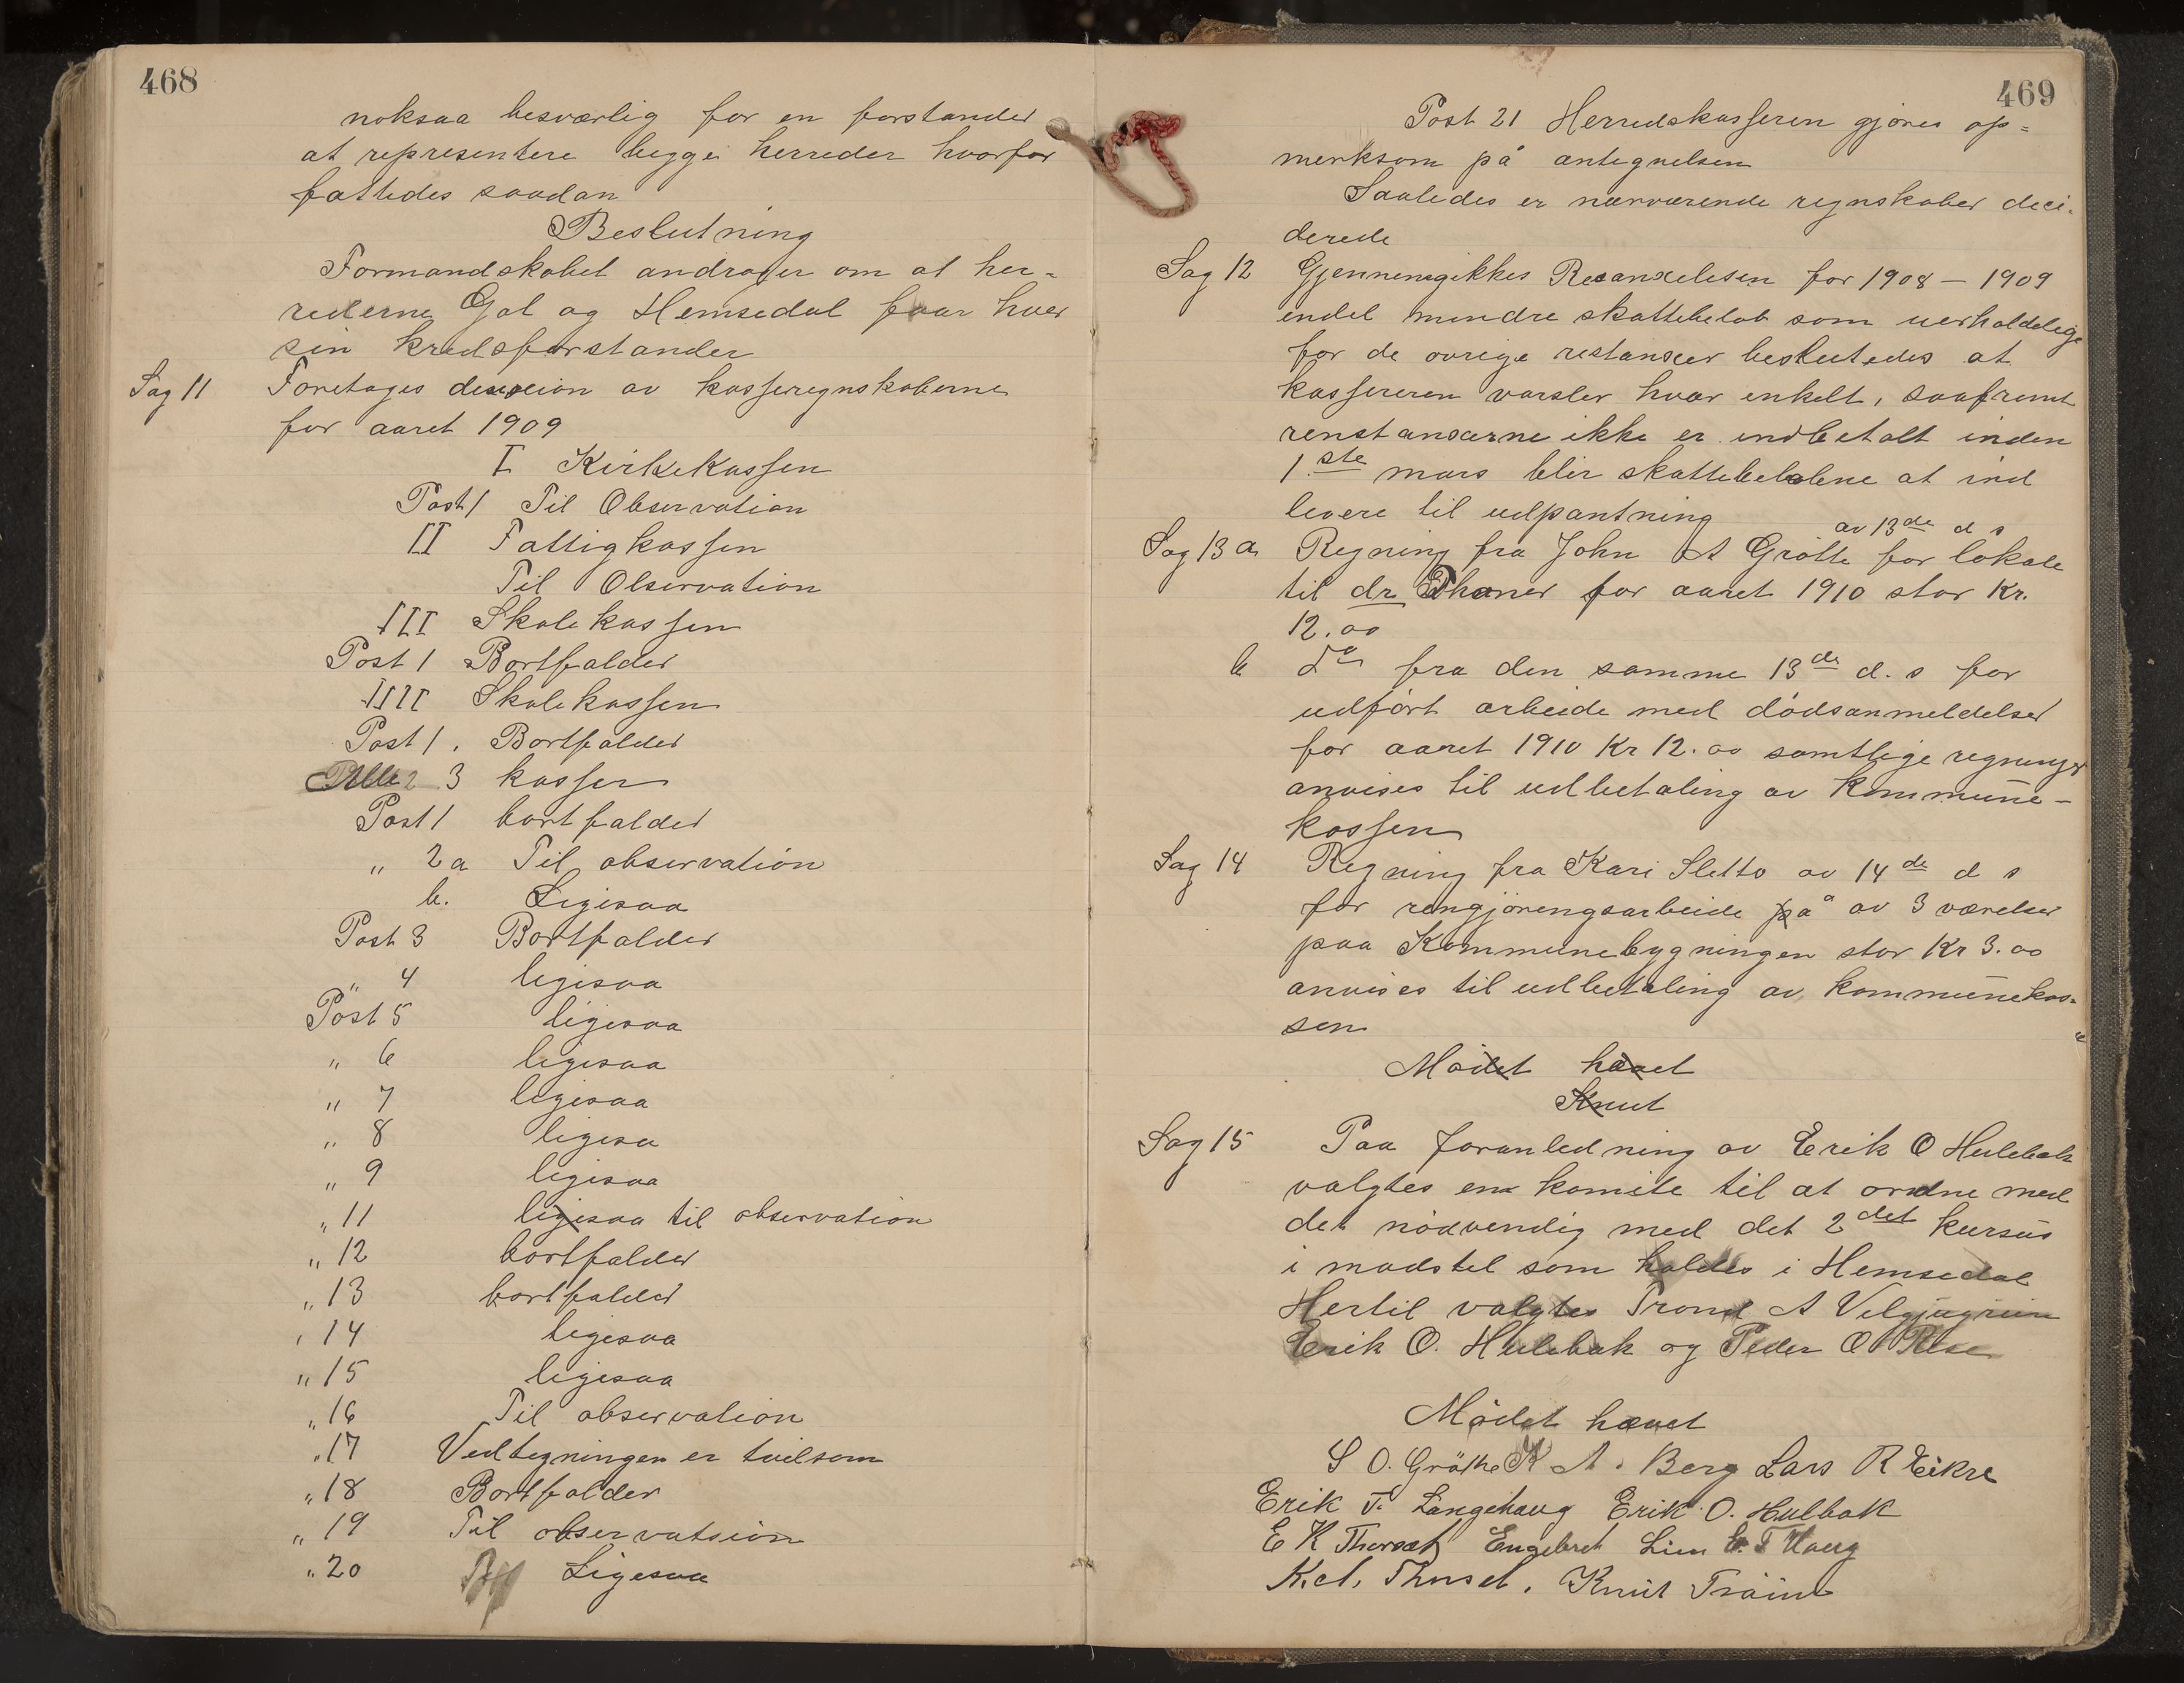 468
noksaa besværlig for en forstander
at representere begge herreder hvorfor
fattedes saadan
Beslutning
Formandskabet andrager om at her-
rederne Gol og Hemsedal faar hver
sin kredsforstander
Sag 11 Foretages av kasseregnskaberne
for aaret 1909
I Kirkekassen
Post 1 Til Observation
II Fattigkassen
Til Observation
III Skolekassen
Post 1 Bortfalder
IIII Skolekassen
Post 1. Bortfalder
Alle 3 kasser
Post 1 bortfalder
" 2a Til observation
b. Ligesaa
Post 3 Bortfalder
" 4 ligesaa
Post 5 ligesaa
" 6 ligesaa
" 7 ligesaa
" 8 ligesa
" 9 ligesaa
" 11 ligesaa til observation
" 12 bortfalder
" 13 bortfalder
" 14 ligesaa
" 15 ligesaa
" 16 Til observation
" 17 Vedtegningen er tvilsom
" 18 Bortfalder
" 19 Til observatsion
" 20 Ligesaa
469
Post 21 Herredskasseren gjøres op=
merksom på antegnelsen
Saaledes er nærværende regnskaber deci-
derede
Sag 12 Gjennemgikkes for 1908 – 1909
endel mindre skattebeløb som uerholdelige
for de øvrige restanser besluttedes at
kassereren varsler hver enkelt, saafremt
renstanserne ikke er indbetalt inden
1ste mars blir skattebeløbene at ind
levere til udpantning
av 13de d s
Sag 13 a Regning fra John A Grøtte for lokale
til dr Thaner for aaret 1910 stor Kr.
12.00
b do fra den samme 13de d. s for
udført arbeide med dødsanmeldelser
for aaret 1910 Kr 12.00 samtlige regninger
anvises til udbetaling av Kommune-
kassen
Sag 14 Regning fra Kari Sletto av 14de d s
for rengjørengsarbeide på av 3 værelser
paa Kommunebygningen stor Kr 3.00
anvises til udbetaling av kommunekas=
sen
Mødet hævet
Knut
Sag 15 Paa foranledning av Erik O Hulebak
valgtes en komite til at ordne med
det nødvendig med det 2det kursus
i madstel som holdes i Hemsedal
Hertil valgtes Trond A
Erik O. Hulebak og Peder O
Mødet hævet
S O. Grøthe K A. Berg Lars R Eikre
Erik T. Langehaug Erik O. Hulbak
E K Thorset Engebret Lien E. T Haug
K. A. Thuset. Knut Traim